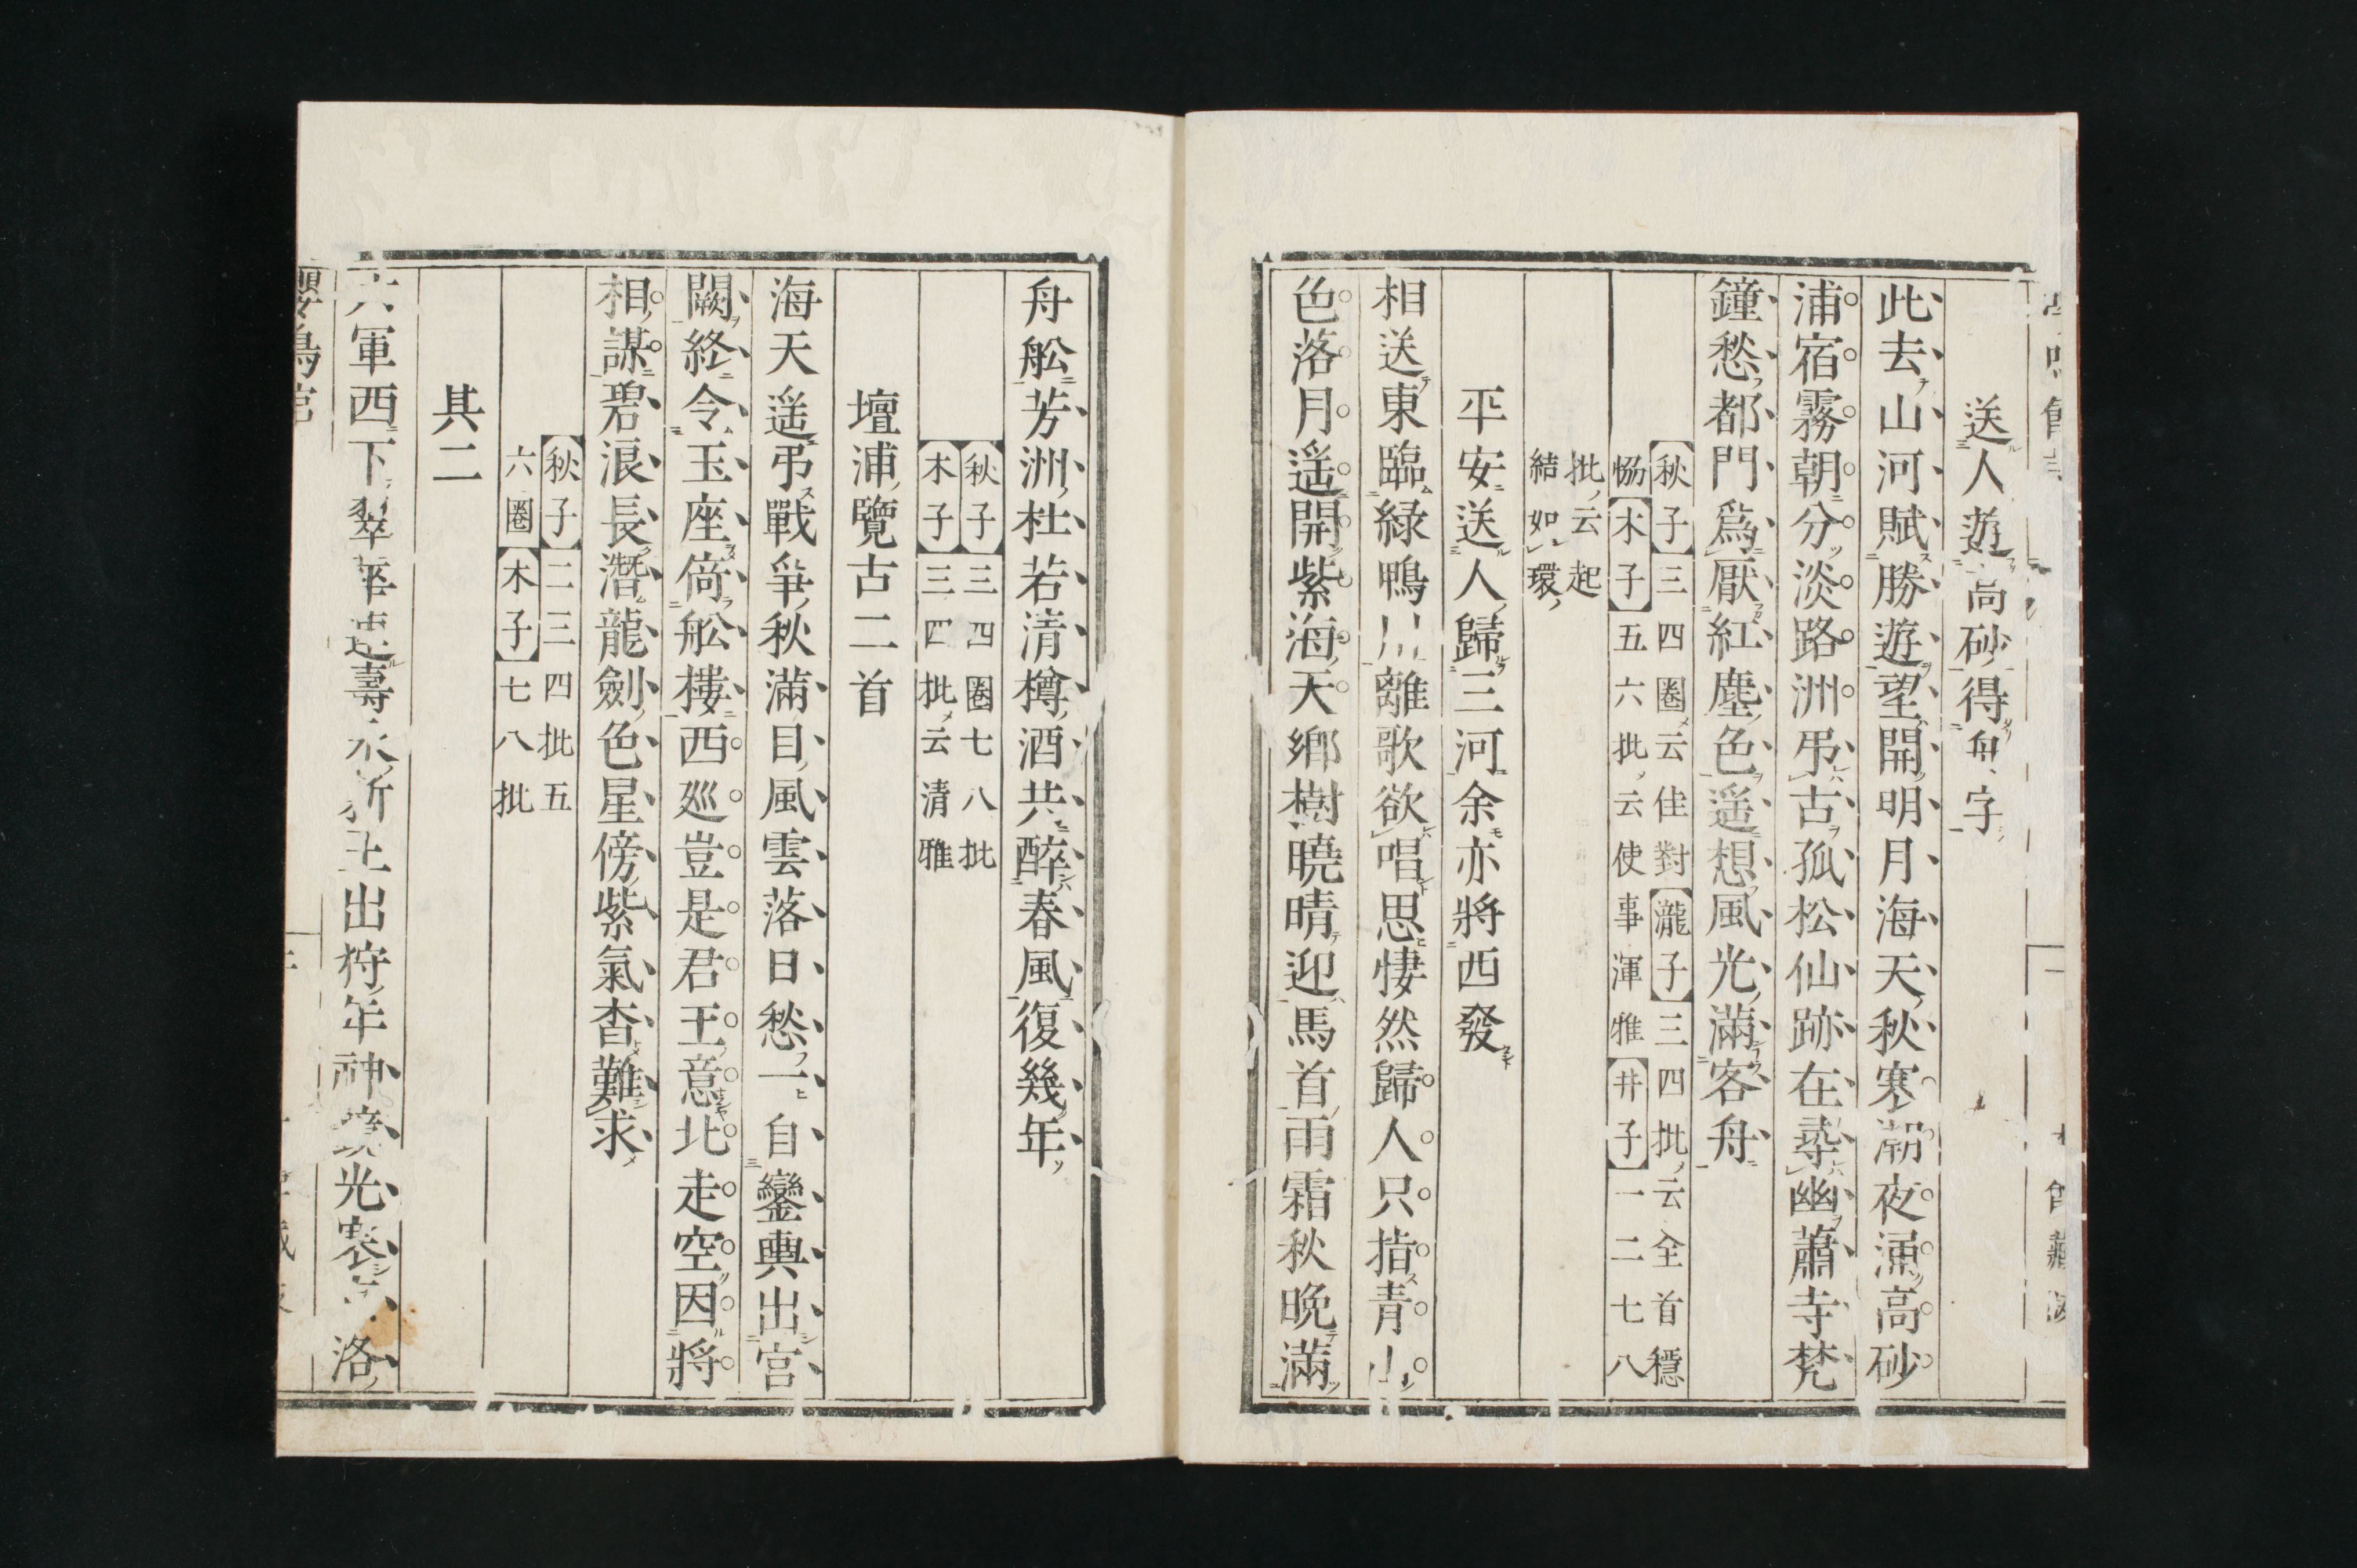 送人遊高砂得舟字
此去山河賦勝遊望開明月海天秋寒潮夜湧高砂
浦宿霧朝分淡路洲弔古孤松仙跡在尋幽蕭寺梵
鐘愁都門爲厭紅塵色遥想風光滿客舟
秋子三四圈云佳對瀧子三四批云全首穩
惱木子五六批云使事渾雅井子一二七八
批云起
結如環
平安送人歸三河余亦將西發
相送東臨綠鴨川離歌欲唱思悽然歸人只指青山
色落月遥開紫海天鄉樹曉晴迎馬首雨霜秋晚滿
舟舩芳洲杜若清樽酒共醉春風復幾年
秋子三四圈七八批
木子三四批云清雅
壇浦覽古二首
海天遥弔戰爭秋滿目風雲落日愁一自鑾輿出宮
闕終令玉座倚舩樓西廵豈是君王意北走空因將
相謀碧浪長潛龍劍色星傍紫氣杳難求
秋子二三四批五
六圈木子七八批
其二
六軍西下翠華遠壽永新主出狩年神 光寒 洛